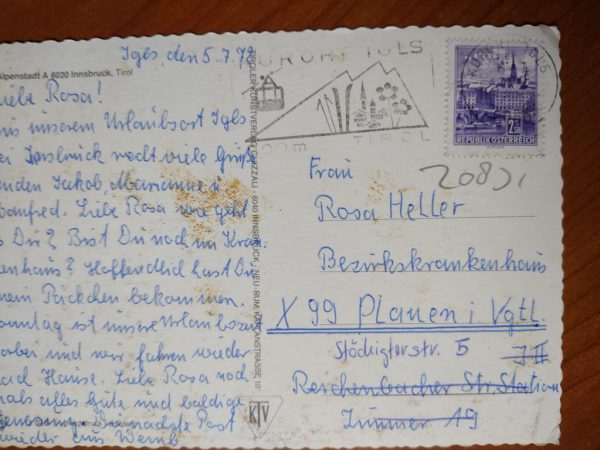 Igls, den 5.7.78
Alpenstadt A 6020 Innsbruck, Tirol
Liebe Rosa!
unserem Urlaubsort Igls
Innsbruck recht viele Grüße
enden Jakob, Marianne u
anfred. Liebe Rosa wie geht
s Dir? Bist Du noch im Kran-
enhaus? Hoffendlich hast Du
ein Päckchen bekommen.
onntag ist unsere Urlaubszeit
orbei und wir fahren wieder
ach Hause. Liebe Rosa noch
mals alles Gute und baldige
enesung. Die nächste Post
wieder aus
TIROLER KUNSTVERLAG CHIZZALI · 6040 INNSBRUCK, NEU-RUM, KAPLANSTRASSE 10
KTV
KURORT IGLS
TIROL
IGLS
2.50
REPUBLIK ÖSTERREICH
Frau
Rosa Heller
Bezirkskrankenhaus
X 99 Plauen i Vgtl.
str. 5
Reichenbacher Str. Station
Zimmer 19